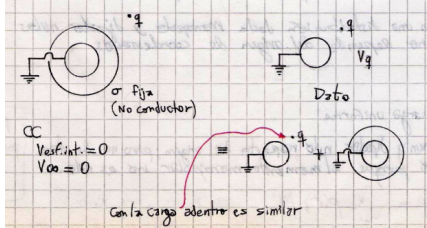 ·q
·q
Vq
σ fija
(No conductor)
Dato
CC
Vesf.int. = 0
V∞ = 0
≡
·q
+
Con la carga adentro es similar